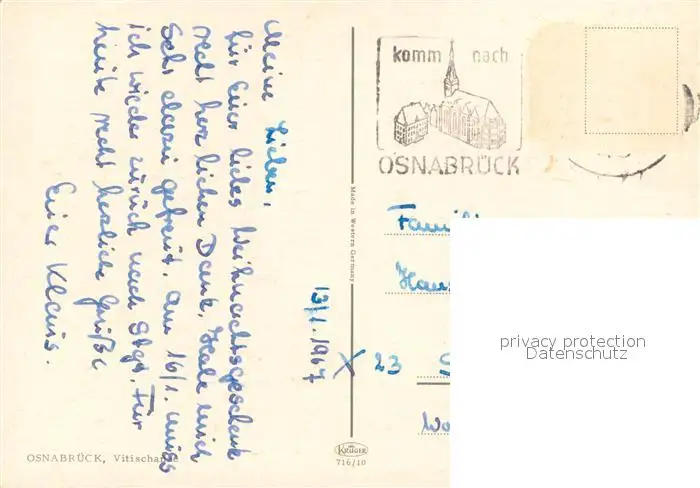 Meine Lieben,
für Euer liebes Weihnachtsgeschenk
recht herzlichen Dank, Habe mich
sehr darü gefreut. Am 16/1. muss
ich wieder zurück nach Stgt. Für
heute recht herzliche Grüße
Euer Klaus.
13/1.1967
OSNABRÜCK, Vitischanze
Made in Western Germany
KRÜGER
716/10
komm nach
OSNABRÜCK
Famili
Haus
X 23 S
Wo
privacy protection
Datenschutz